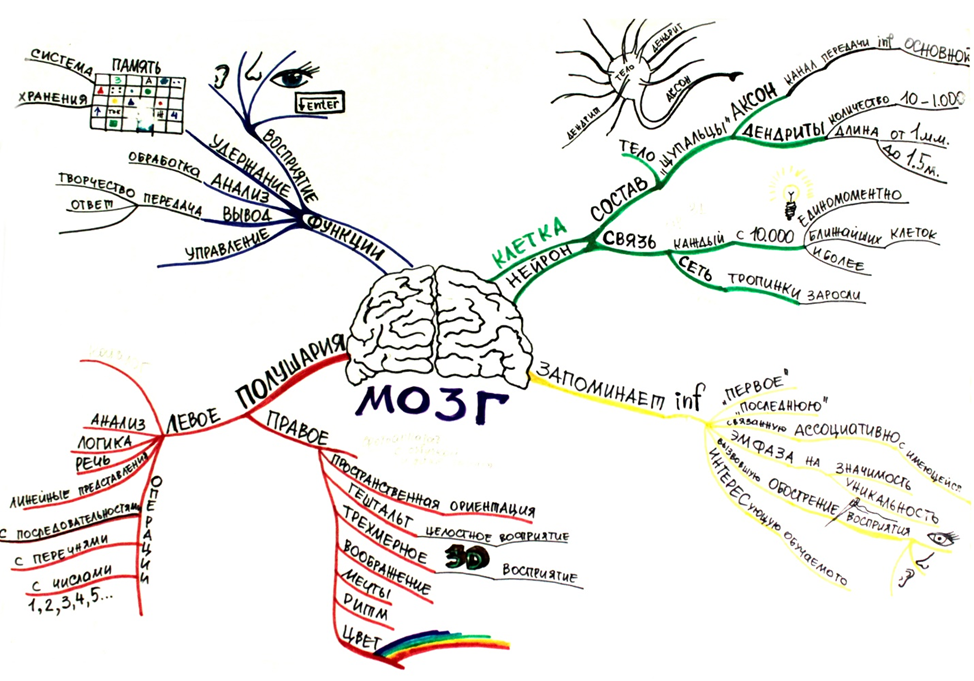 СИСТЕМА
ХРАНЕНИЯ
ПАМЯТЬ
З
А
4
enter
ВОСПРИЯТИЕ
УДЕРЖАНИЕ
ОБРАБОТКА
АНАЛИЗ
ТВОРЧЕСТВО
ОТВЕТ
ПЕРЕДАЧА
ВЫВОД
УПРАВЛЕНИЕ
ФУНКЦИИ
ДЕНДРИТ
ТЕЛО
АКСОН
ДЕНДРИТ
КЛЕТКА
НЕЙРОН
СОСТАВ
ТЕЛО
"ЩУПАЛЬЦЫ"
АКСОН
КАНАЛ ПЕРЕДАЧИ inf ОСНОВНОЙ
ДЕНДРИТЫ
КОЛИЧЕСТВО 10-1.000
ДЛИНА ОТ 1 мм.
ДО 1.5 м.
СВЯЗЬ КАЖДЫЙ С 10.000
ЕДИНОМОМЕНТНО
БЛИЖАЙШИХ КЛЕТОК
И БОЛЕЕ
СЕТЬ ТРОПИНКИ ЗАРОСЛИ
МОЗГ
ПОЛУШАРИЯ
ЛЕВОЕ
АНАЛИЗ
ЛОГИКА
РЕЧЬ
ЛИНЕЙНЫЕ ПРЕДСТАВЛЕНИЯ
ОПЕРАЦИИ
С ПОСЛЕДОВАТЕЛЬНОСТЯМИ
С ПЕРЕЧНЯМИ
С ЧИСЛАМИ
1, 2, 3, 4, 5...
ПРАВОЕ
ПРОСТРАНСТВЕННАЯ ОРИЕНТАЦИЯ
ГЕШТАЛЬТ ЦЕЛОСТНОЕ ВОСПРИЯТИЕ
ТРЕХМЕРНОЕ 3D ВОСПРИЯТИЕ
ВООБРАЖЕНИЕ
МЕЧТЫ
РИТМ
ЦВЕТ
ЗАПОМИНАЕТ inf
"ПЕРВОЕ"
"ПОСЛЕДНЮЮ"
СВЯЗАННУЮ АССОЦИАТИВНО С ИМЕЮЩЕЙСЯ
ЭМФАЗА НА ЗНАЧИМОСТЬ
УНИКАЛЬНОСТЬ
ВЫЗВАВШУЮ ОБОСТРЕНИЕ ВОСПРИЯТИЯ
ИНТЕРЕСУЮЩУЮ ОБУЧАЕМОГО